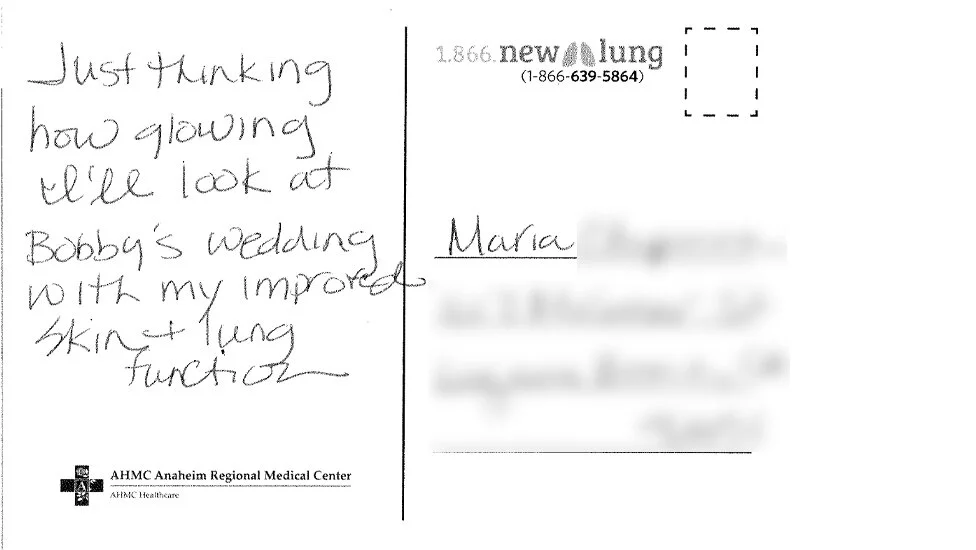 Just thinking
how glowing
I'll look at
Bobby's wedding
with my improved
skin + lung
function
AHMC Anaheim Regional Medical Center
AHMC Healthcare
1.866.new lung
(1-866-639-5864)
Maria